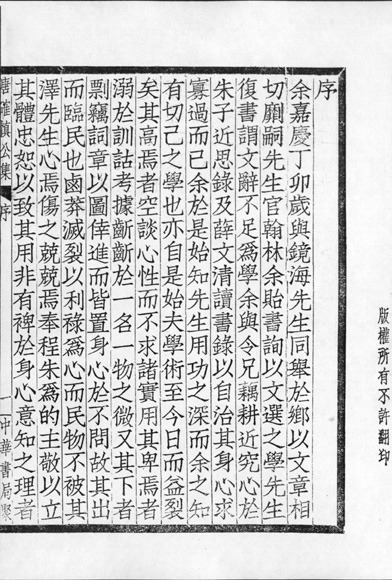 版權所有不許翻印
序
余嘉慶丁卯歲與鏡海先生同舉於鄉以文章相
切劘嗣先生官翰林余貽書詢以文選之學先生
復書謂文辭不足爲學余與令兄耦耕近究心於
朱子近思錄及薛文清讀書錄以自治其身心求
寡過而已余於是始知先生用功之深而余之知
有切己之學也亦自是始夫學術至今日而益裂
矣其高焉者空談心性而不求諸實用其卑焉者
溺於訓詁考據齗齗於一名一物之微又其下者
剽竊詞章以圖倖進而皆置身心於不問故其出
而臨民也鹵莽滅裂以利祿爲心而民物不被其
澤先生心焉傷之兢兢焉奉程朱爲的主敬以立
其體忠恕以致其用非有裨於身心意知之理者
唐確慎公集 序 一 中華書局聚